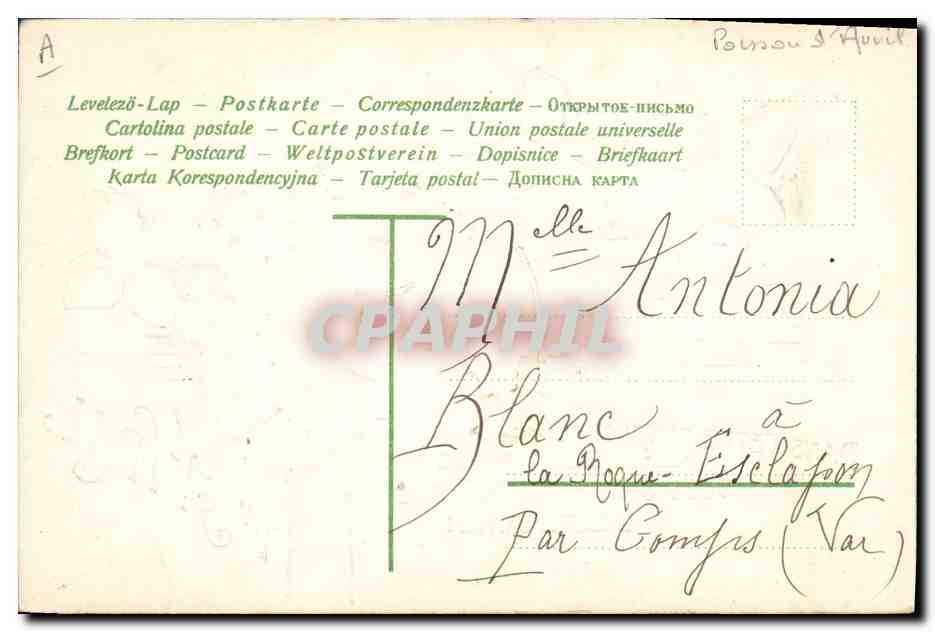 A
Poisson d'Avril
Levelező-Lap – Postkarte – Correspondenzkarte – Открыток-письмо
Cartolina postale – Carte postale – Union postale universelle
Brefkort – Postcard – Weltpostverein – Dopisnice – Briefkaart
Karta Korespondencyjna – Tarjeta postal – Дописна карта
Melle Antonia
CPAPHIL
Blanc à
la Roque-Esclapon
Par Comps (Var)